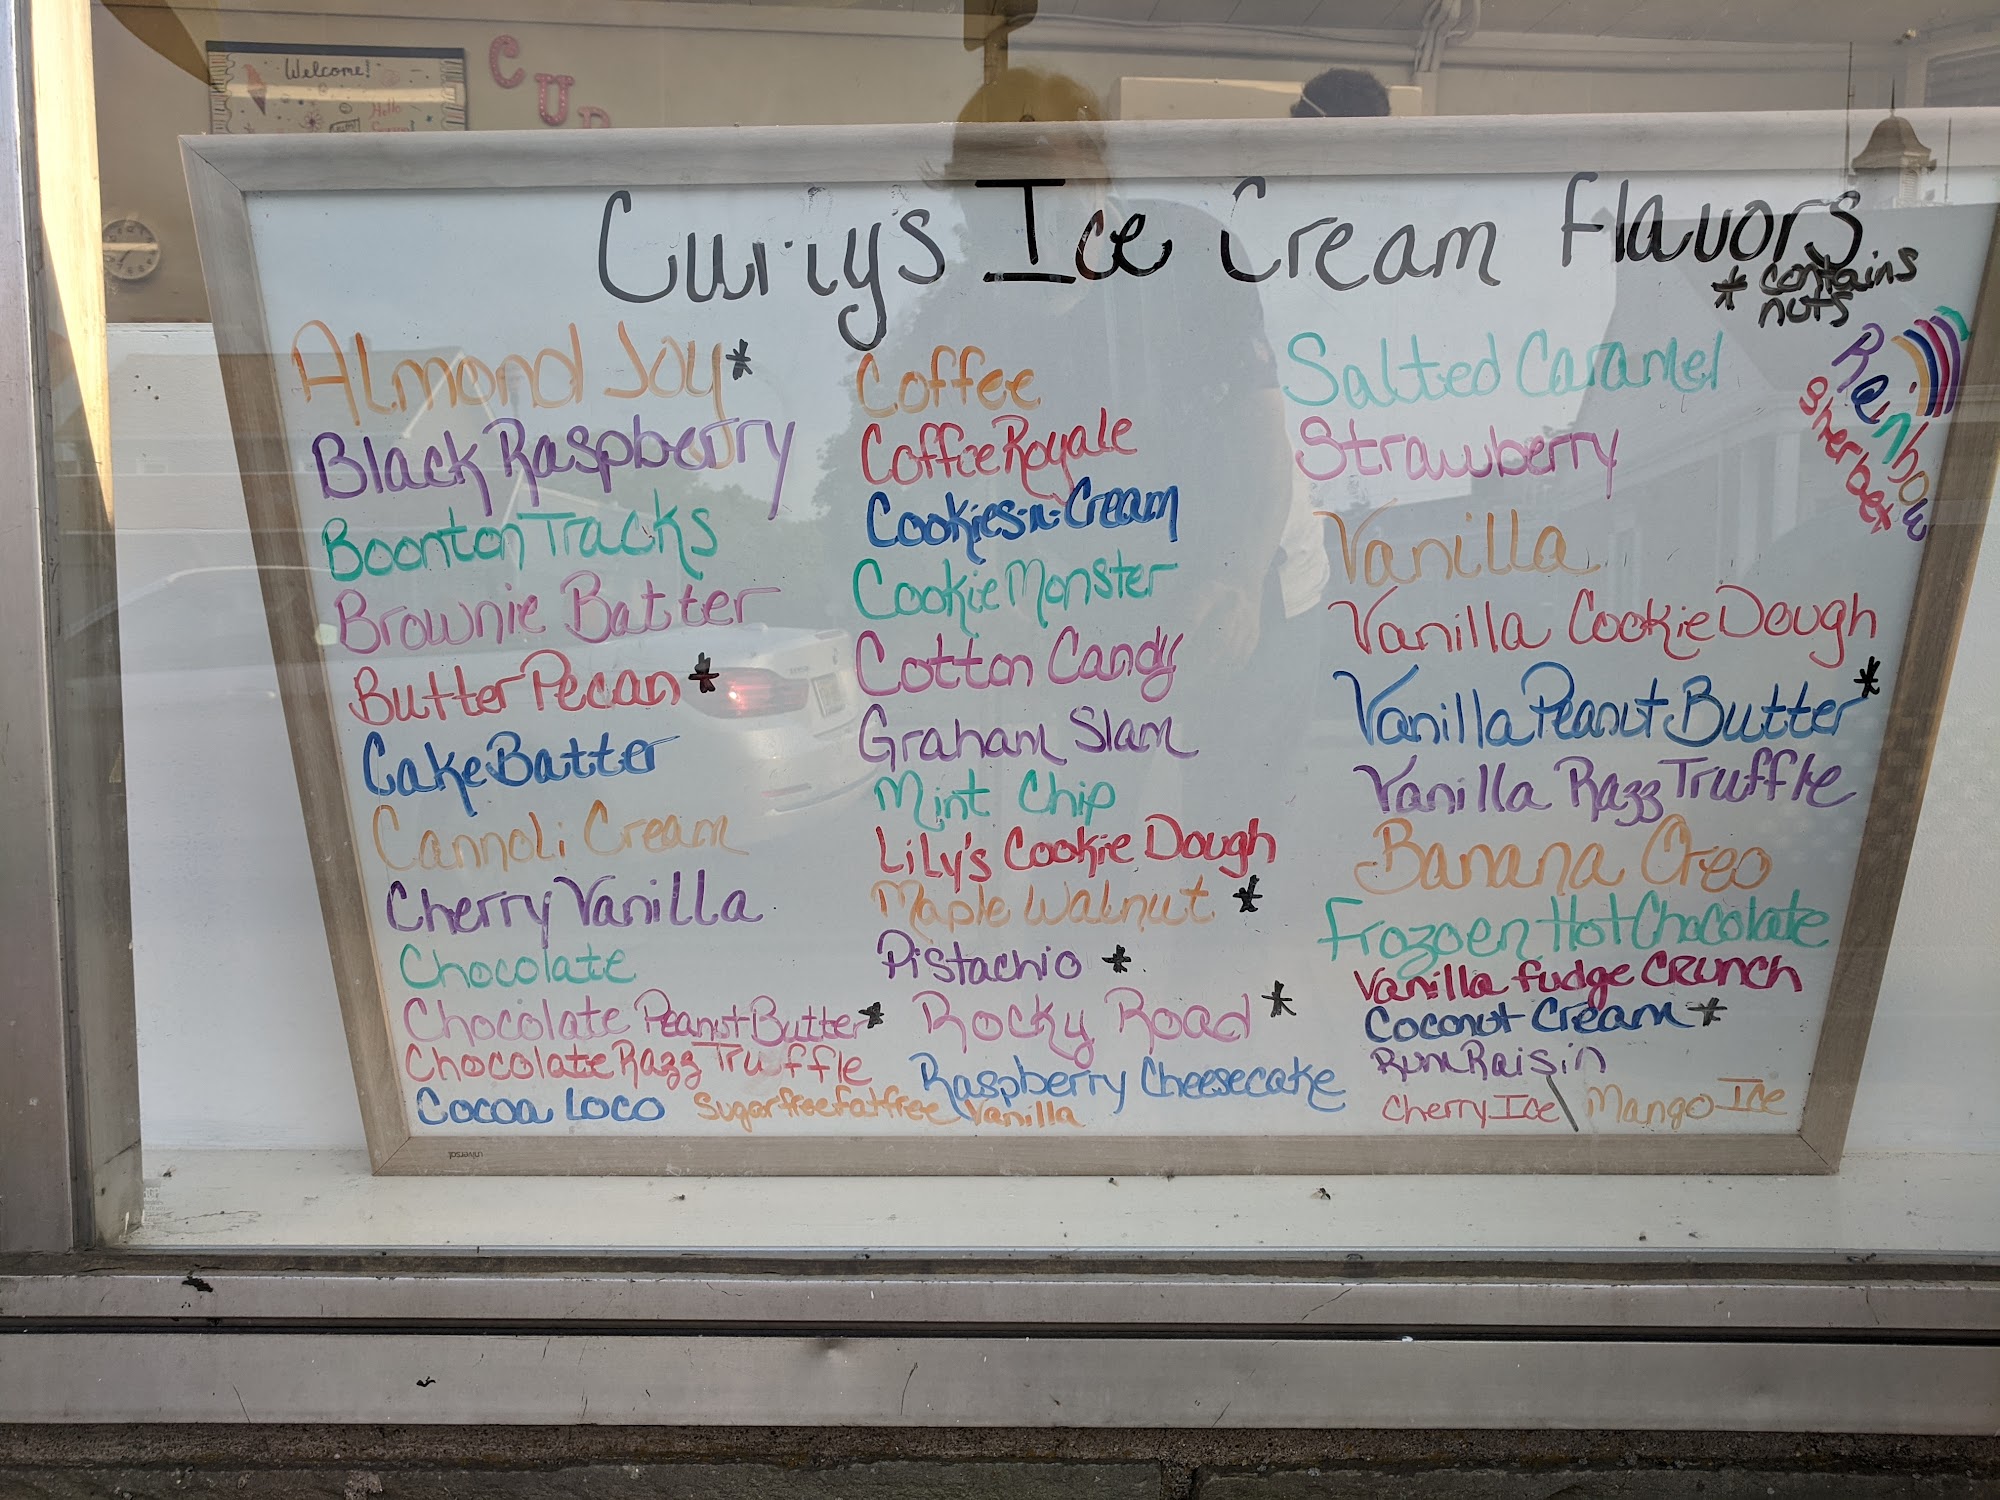 Welcome!
Hello
CUR
Curly's Ice Cream Flavors
* contains
nuts
Almond Joy*
Black Raspberry
Boonton Tracks
Brownie Batter
Butter Pecan*
Cake Batter
Cannoli Cream
Cherry Vanilla
Chocolate
Chocolate Peanut Butter*
Chocolate Razz Truffle
Cocoa Loco
Sugarfree fatfree Vanilla
Coffee
Coffee Royale
Cookies-n-Cream
Cookie Monster
Cotton Candy
Graham Slam
Mint Chip
Lily's Cookie Dough
Maple Walnut *
Pistachio *
Rocky Road *
Raspberry Cheesecake
Salted Caramel
Strawberry
Vanilla
Vanilla Cookie Dough
Vanilla Peanut Butter*
Vanilla Razz Truffle
Banana Oreo
Frozoen Hot Chocolate
Vanilla fudge CRUNCH
Coconut Cream*
Rum Raisin
Cherry Ice \ Mango Ice
Rainbow
Sherbet
universal